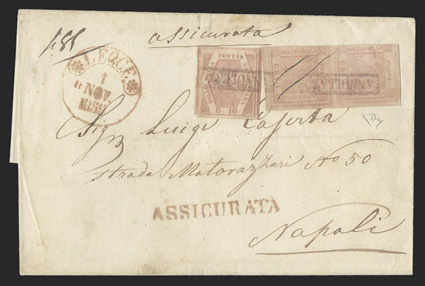 assicurata
LECCE
1
NOV
1859
ANNULLATO
Sig.r Luigi Caserta
Strada Materazzari No 50
ASSICURATA
Napoli